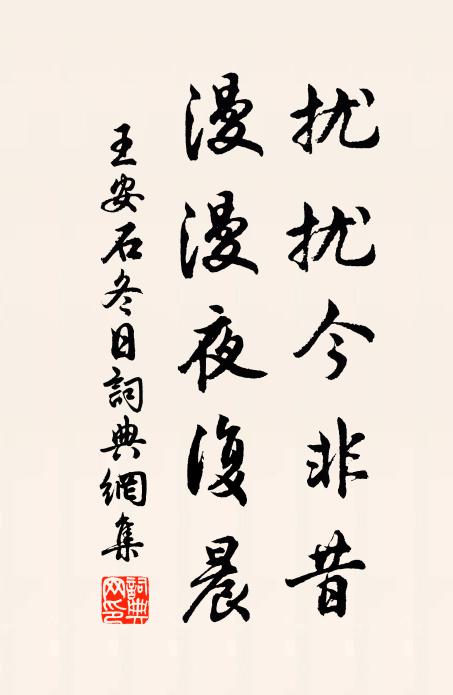 扰扰今非昔
漫漫夜復晨
王安石冬日詞典網集
詞典网印